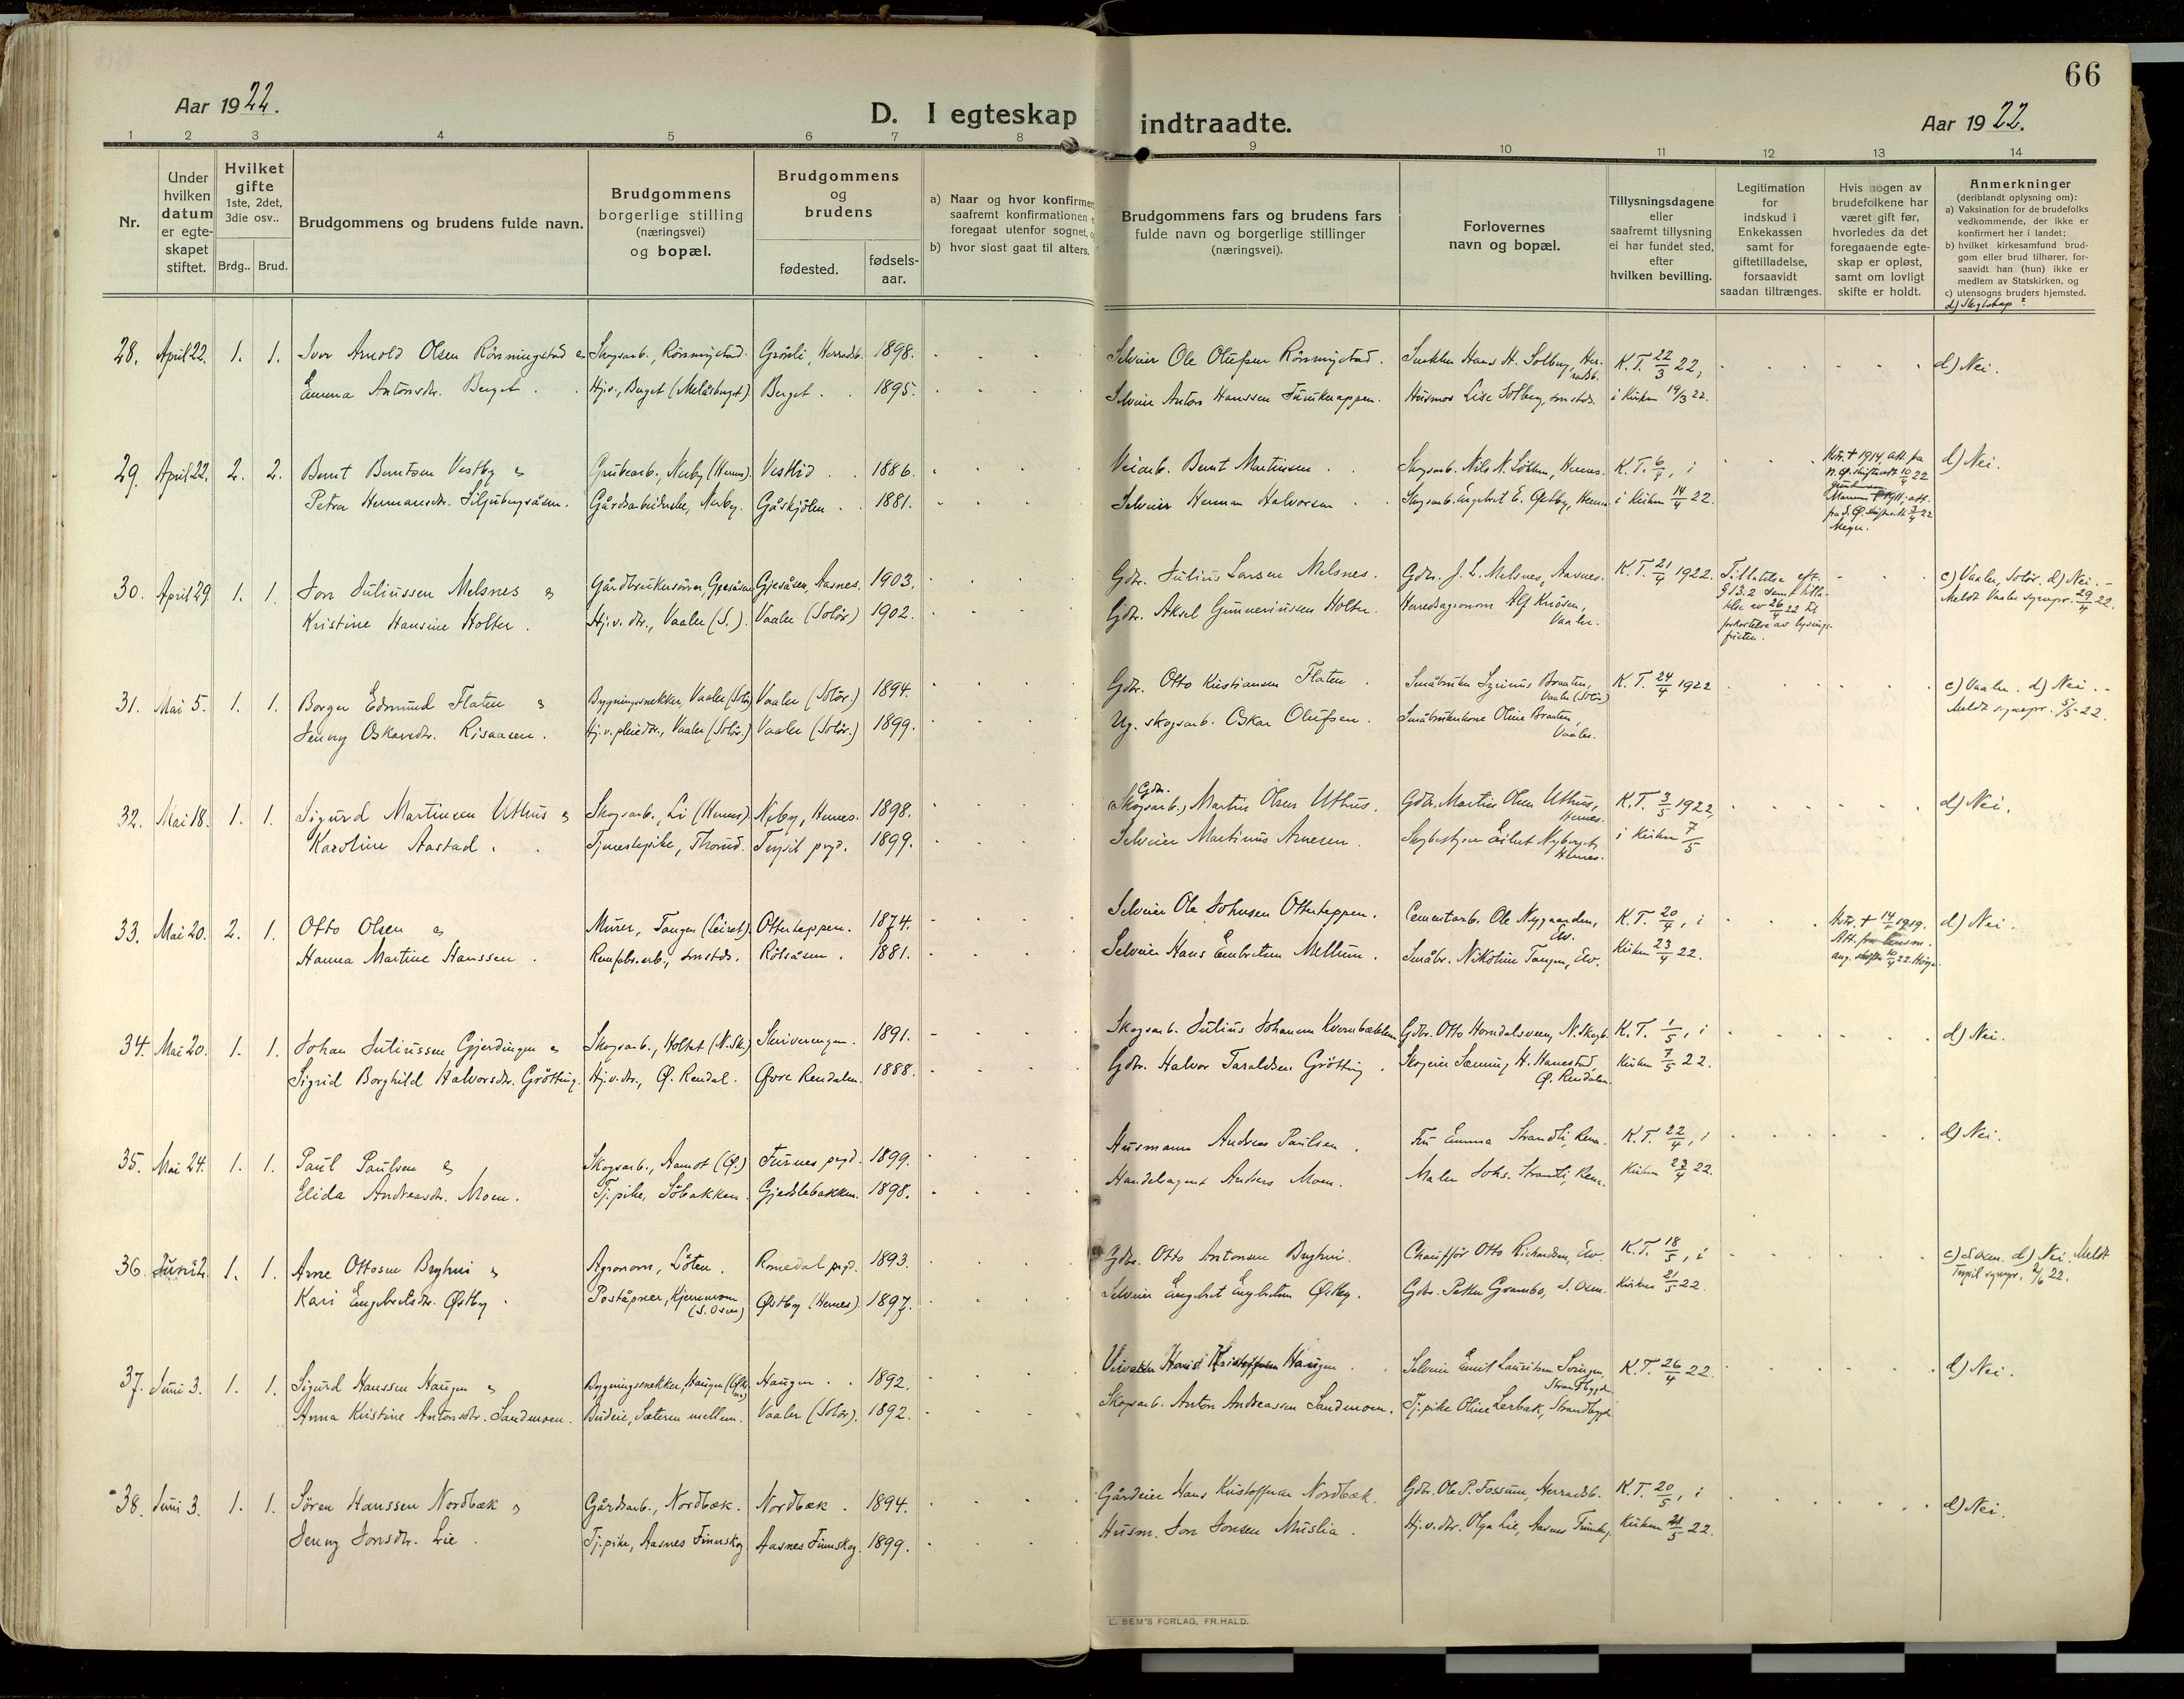 66
Aar 1922.
D. I egteskap indtraadte.
Aar 1922.
1 2 3 4 5 6 7 8 9 10 11 12 13 14
Nr.
Under hvilken datum er egte-skapet stiftet.
Hvilket gifte 1ste, 2det, 3die osv..
Brdg.. Brud.
Brudgommens og brudens fulde navn.
Brudgommens borgerlige stilling (næringsvei) og bopæl.
Brudgommens og brudens
fødested.
fødsels-aar.
a) Naar og hvor konfirmer
saafremt konfirmationen
foregaat utenfor sognet,
b) hvor sidst gaat til alters.
Brudgommens fars og brudens fars
fulde navn og borgerlige stillinger
(næringsvei).
Forlovernes
navn og bopæl.
Tillysningsdagene
eller
saafremt tillysning
ei har fundet sted,
efter
hvilken bevilling.
Legitimation
for
indskud i
Enkekassen
samt for
giftetilladelse,
forsaavidt
saadan tiltrænges.
Hvis nogen av
brudefolkene har
været gift før,
hvorledes da det
foregaaende egte-
skap er opløst,
samt om lovligt
skifte er holdt.
Anmerkninger
(deriblandt oplysning om):
a) Vaksination for de brudefolks
vedkommende, der ikke er
konfirmert her i landet;
b) hvilket kirkesamfund brud-
gom eller brud tilhører, for-
saavidt han (hun) ikke er
medlem av Statskirken, og
c) utensogns bruders hjemsted.
d) Slegtskap?
28. April 22. 1. 1. Iver Arnold Olsen Rönningstad & Skogsarb., Rönningstad. Grönli, Herradsb. 1898. Selveier Ole Olufsen Rönningstad. Hans H. Solberg, Her-radsb. K.T. 22/3 22, d) Nei.
Emma Antonsdr. Berget. Hj.v., Berget (Melåsberget). Berget. 1895. Selveier Anton Hanssen. Husmor Lise Solberg, smstds. i Kirken 19/3 22.
29. April 22. 2. 2. Bernt Berntsen Vestby & Grubearb., Nerby (Hernes). Vestlid 1886. Veiarb. Bernt Martinsen. Skogsarb. Nils N. Hernes. K.T. 6/4, i d) Nei.
Petra Hermansdr. Siljubergsåsen. Gårdsarbeiderske, Nerby. Gåskjölen 1881. Selveier Herman Halvorsen Skogsarb. Engebret E. Østby, Hernes. i Kirken 14/4 22.
Hstr. † 1914, att. fra
n. Ø. skifterett 10/4 22
Mannen † 1911, att.
fra S. Ø. skifterett 3/4 22
30. April 29. 1. 1. Jon Juliussen Melsnes & Gårdbrukersönn, Gjesåsen Gjesåsen, Aasnes. 1903. Gdbr. Julius Larsen Melsnes. Gdbr. J. L. Melsnes, Aasnes. K.T. 21/4 1922. Tillatelse eft. c) Vaaler, Solör. d) Nei. -
Kristine Hansine Holter. Hj.v. dtr., Vaaler (S.). Vaaler (Solör) 1902. Gdbr. Aksel Gunneriussen Holter. Herredsagronom Alf Knösen, Vaaler. Meldt Vaaler sognepr. 29/4 22.
§ 13.2 samt tilla-
telse av 26/4 22 til
forkortelse av lysnings-
fristen.
31. Mai 5. 1. 1. Borger Edmund Flaten & Bygningssnekker, Vaaler (Solör) Vaaler (Solör.) 1894. Gdbr. Otto Kristiansen Flaten. Småbruker Braaten, Vaaler (Solör) K.T. 24/4 1922 c) Vaaler. d) Nei. -
Jenny Oskarsdr. Risaasen. Hj.v. pleiedtr., Vaaler (Solör.) Vaaler (Solör.) 1899. Ug. skogsarb. Oskar Olufsen. Småbrukerkone Oline Braaten, Vaaler. Meldt sognepr. 5/5 22.
32. Mai 18. 1. 1. Sigurd Martinsen Uthus & Skogsarb., Li (Hernes). Nyby, Hernes. 1898. Gdbr. (Skogsarb.) Martin Olsen Uthus. Gdbr. Martin Olsen Uthus, Hernes. K.T. 3/5 1922, d) Nei.
Karoline Aastad. Tjenestepike, Thorud. Trysil prgd. 1899. Selveier Martinus Arnesen. Skogbestyrer Eilert Nyberget, Hernes. i Kirken 7/5
33. Mai 20. 2. 1. Otto Olsen & Murer, Tangen (Leiret). Otterteppen. 1874. Selveier Ole Johnsen Otterteppen. Cementarb. Ole Nygaarden, Elv. K.T. 20/4, i d) Nei.
Hanna Martine Hanssen. smstds. Rölsåsen. 1881. Selveier Hans Embretsen Mellum. Småbr. Nikoline Tangen, Elv. Kirken 23/4 22.
34. Mai 20. 1. 1. Johan Juliussen Gjerdingen & Skogsarb., Holtet (N.Sk.) Skriverengen. 1891. Skogsarb. Julius Johansen Kvernbækken Gdbr. Otto Horndalsveen, N. Skogb. K.T. 1/5, i d) Nei.
Sigrid Borghild Halvorsdtr. Grötting. Hj.v.dtr., Ø. Rendal. Øvre Rendalen. 1888. Gdbr. Halvor Taraldsen Grötting. Skogeier Sæming H. Hanestad, Ø. Rendalen. Kirken 7/5 22.
35. Mai 24. 1. 1. Paul Paulsen & Skogsarb., Aamot (Ø.) Furnes prgd. 1899. Husmann Andreas Paulsen. Fru Emma Strandli, Rena. K.T. 22/4, i d) Nei.
Elida Andreasdr. Moen. Tj.pike, Söbakken. Gjedslebakken. 1898. Handelsagent Andreas Moen. Maler Johs. Strandli, Rena. Kirken 23/4 22.
36. Juni 2. 1. 1. Arne Ottosen Bryhni & Agronom, Löten. Romedal prgd. 1893. Gdbr. Otto Antonsen Bryhni. Chauffør Otto Richardsen, Elv. K.T. 18/5, i c) S. Osen. d) Nei. Meldt
Kari Engebretsdr. Østby. Poståpner, Kjernmoen (S. Osen) Østby (Hernes). 1897. Selveier Engebret Engebretsen Østby. Gdbr. Petter Grambo, S. Osen. Kirken 21/5 22. Trysil sognepr. 2/6 22.
37. Juni 3. 1. 1. Sigurd Hanssen Haugen & Bygningssnekker, Haugen Haugen 1892. Hans Kristoffersen Haugen Selveier Emil Lauritsen Svingen, Strandbygda K.T. 26/4 22. d) Nei.
Anna Kristine Antonsdr. Sandmoen. Budeie, Sæteren mellem. Vaaler (Solör). 1892. Skogsarb. Anton Andreassen Sandmoen. Tj.pike Oline Lerbæk, Strandbygd.
38. Juni 3. 1. 1. Sören Hanssen Nordbæk & Gårdsarb., Nordbæk. Nordbæk 1894. Gårdeier Hans Kristoffersen Nordbæk. Gdbr. Ole P. Fossum, Herradsb. K.T. 20/5, i d) Nei.
Jenny Jonsdtr. Lie. Tj.pike, Aasnes Finnskog Aasnes Finnskog. 1899. Husm. Jon Jonsen Muslia. Hj.v.dtr. Olga Lie, Aasnes Finnskog. Kirken 21/5 22.
E. SEM'S FORLAG, FR.HALD.